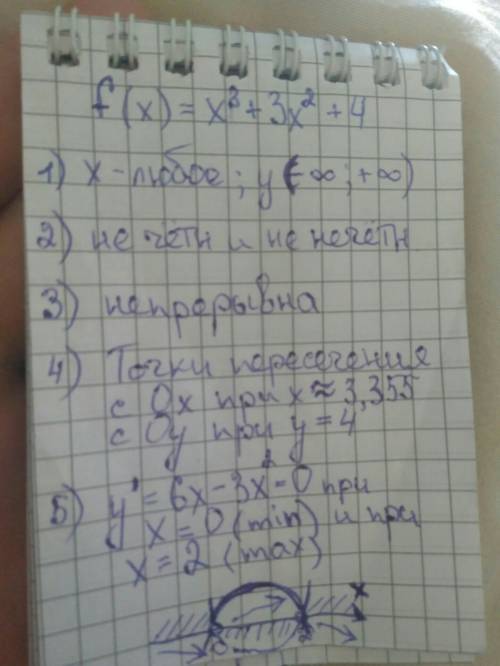 f(x) = x³ + 3x² + 4
1) х - любое; у (-∞; +∞)
2) не чётн и не нечётн
3) непрерывна
4) Точки пересечения
с Ох при х ≈ 3,355
с Оу при у = 4
5) y' = 6x - 3x² = 0 при
х = 0 (min) и при
х = 2 (max)
x
0 2